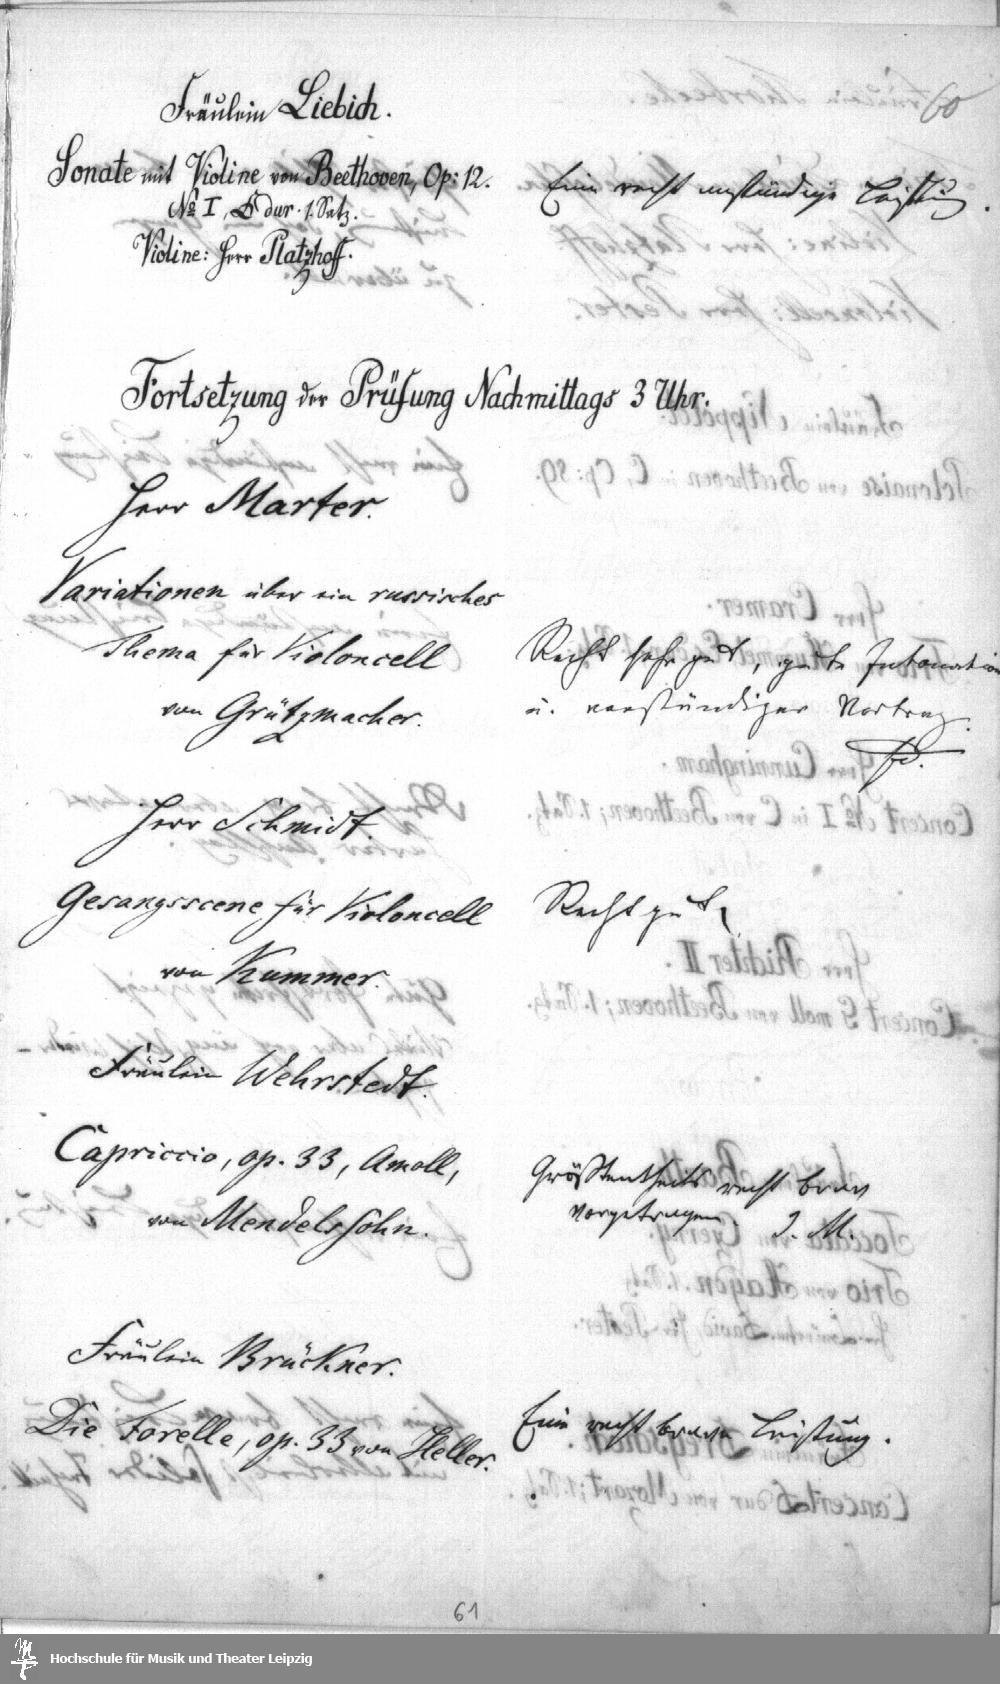 60
Fräulein Liebich.
Sonate mit Violine von Beethoven, Op: 12.
№ I, D dur. 1. Satz.
Violine: Herr Platzhoff.
Eine recht anständige Leistung.
Fortsetzung der Prüfung Nachmittags 3 Uhr.
Herr Marter.
Variationen über ein russisches
Thema für Violoncell
von Grützmacher.
Recht sehr gut, gute Intonation
u. verständiger Vortrag.
Herr Schmidt.
Gesangsscene für Violoncell
von Kummer.
Recht gut,
Fräulein Wehrstedt.
Capriccio, op. 33, Amoll,
von Mendelssohn.
Größtentheils recht brav
vorgetragen. J. M.
Fräulein Brückner.
Die Forelle, op. 33 von Heller.
Eine recht brave Leistung.
61
Hochschule für Musik und Theater Leipzig